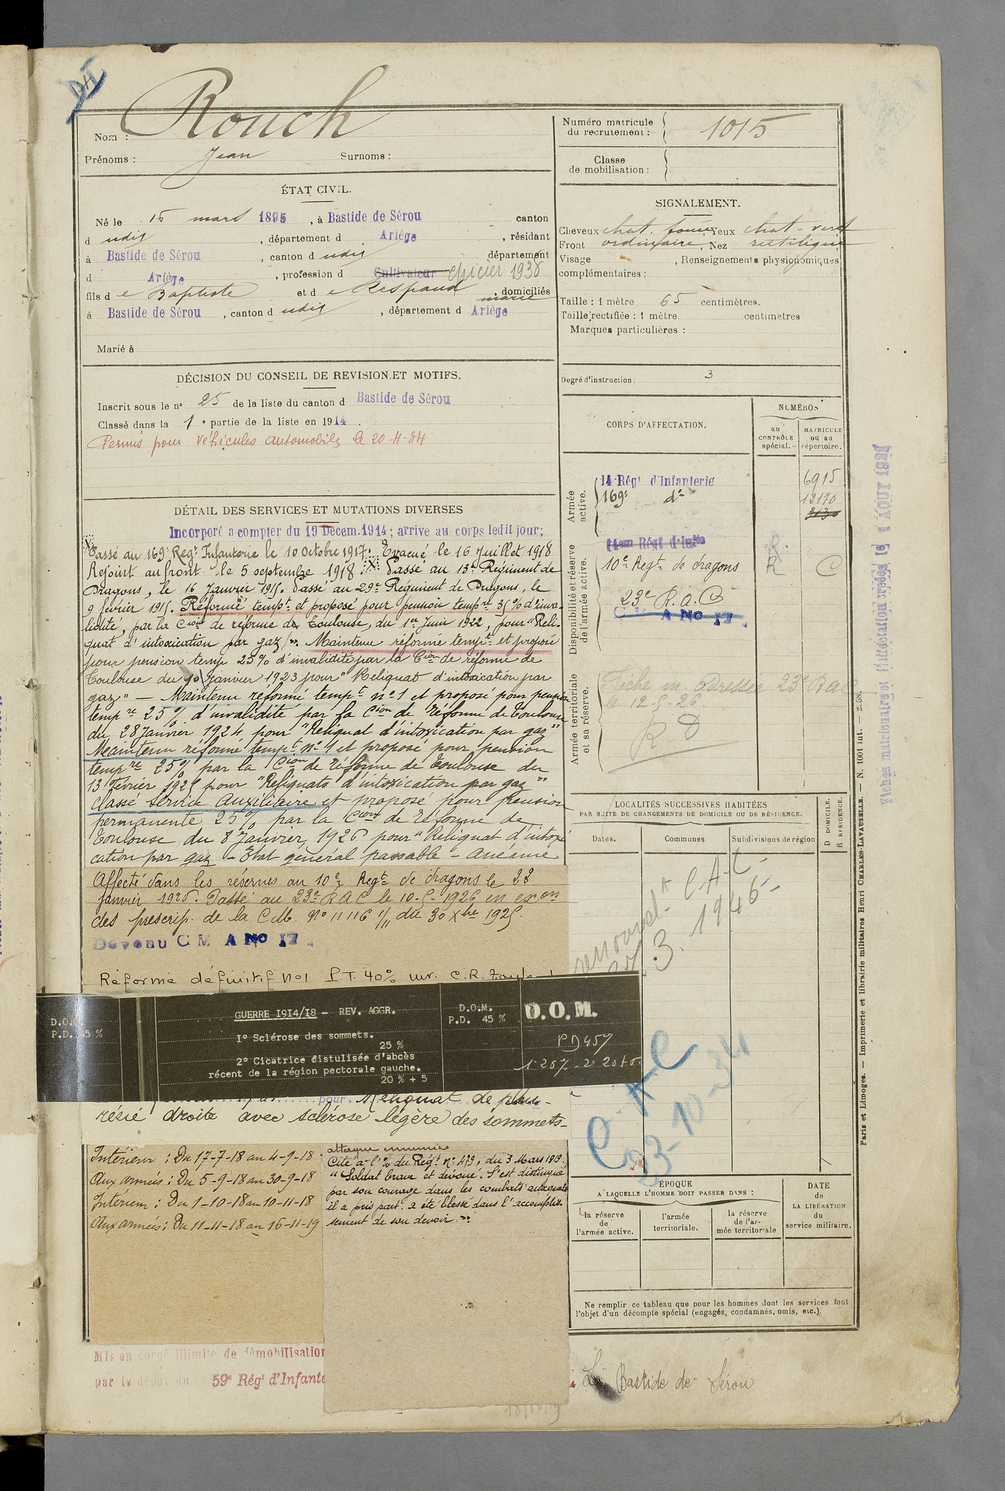 Rouch
Nom :
Prénoms : Jean Surnoms :
Numéro matricule
du recrutement : 1015
Classe
de mobilisation :
ÉTAT CIVIL.
Né le 15 mars 1895, à Bastide de Sérou canton
d udit, département d Ariège, résidant
à Bastide de Sérou, canton d udit département
d Ariège, profession d Cultivateur Epicier 1938
fils d e Baptiste et d e Respaud, domiciliés
marié
à Bastide de Sérou, canton d udit, département d Ariège
Marié à
SIGNALEMENT.
Cheveux chat. foncé, Yeux chat. vert
Front ordinaire, Nez rectiligne
Visage , Renseignements physionomiques
complémentaires :
Taille : 1 mètre 65 centimètres.
Taille rectifiée : 1 mètre centimètres
Marques particulières :
Degré d'instruction : 3
DÉCISION DU CONSEIL DE REVISION ET MOTIFS.
Inscrit sous le n° 25 de la liste du canton d Bastide de Sérou
Classé dans la 1e partie de la liste en 1914.
Permis pour véhicules automobiles le 20-4-34
DÉTAIL DES SERVICES ET MUTATIONS DIVERSES
Incorporé a compter du 19 Décem. 1914; arrive au corps ledit jour;
Passé au 169e Régt Infanterie le 10 Octobre 1917. Evacué le 16 Juillet 1918
Rejoint au front le 5 septembre 1918. Passé au 13e Régiment de
Dragons, le 16 Janvier 191. Passé au 29e Régiment de Dragons, le
9 février 191. Réformé tempre et proposé pour pension tempre 35% d'inva-
lidité, par la Cion de réforme de Toulouse, du 1er Juin 1922, pour "Reli-
quat d'intoxication par gaz". Maintenu réformé tempre et proposé
pour pension temp 25% d'invalidité par la Cion de réforme de
Toulouse du 10 Janvier 1923 pour "Reliquat d'intoxication par
gaz" — Maintenu réformé tempre n°1 et proposé pour pension
tempre 25% d'invalidité par la Cion de réforme de Toulouse
du 28 Janvier 1924 pour "Reliquat d'intoxication par gaz"
Maintenu réformé tempre n°1 et proposé pour pension
tempre 25% par la Cion de Réforme de Toulouse du
13 Février 1925 pour "Reliquats d'intoxication par gaz"
Classé Service Auxiliaire et proposé pour Pension
permanente 25% par la Cion de Réforme de
Toulouse du 8 Janvier 1926 pour "Reliquat d'intoxi
cation par gaz - Etat général passable - Anémie
Affecté dans les réserves au 10e Régt de dragons le 28
Janvier 1926. Passé au 23e R.A.C le 10-5-1926 en exon
des prescrip. de la C.M. N° 11116 1/11 du 30 Xbre 1925.
Devenu C M A No 17.
Réformé définitif n°1 P.T. 40%
D.O.M.
P.D. 45 %
GUERRE 1914/18 - REV. AGGR.
1° Sclérose des sommets.
25 %
2° Cicatrice distulisée d'abcès
récent de la région pectorale gauche.
20 % + 5
D.O.M.
P.D. 45 %
D.O.M.
pour Reliquat de pleu-
résie droite avec sclérose légère des sommets-
Intérieur : Du 17-7-18 au 4-9-18
Aux armées : Du 5-9-18 au 30-9-18
Intérieur : Du 1-10-18 au 10-11-18
Aux armées : Du 11-11-18 au 16-11-19
attaque ennemie
Cité à l'% du Régt n° 473, du 3 Mars 1919
"Soldat brave et dévoué. S'est distingué
par son courage dans les combats auxquels
il a pris part. a été blessé dans l'accomplis-
sement de son devoir".
Mis en congé illimité de démobilisation
par le dépôt du 59e Régt d'Infante
La Bastide de Sérou
CORPS D'AFFECTATION.
NUMÉROS
au
CONTRÔLE
spécial.
MATRICULE
ou au
répertoire.
Armée
active.
14 Régt d'Infanterie 6915
169e do 12170
Disponibilité et réserve
de l'armée active.
10e Régt de dragons R C
23e R.A.C
C. M. A No 17.
Armée territoriale
et sa réserve.
Fiche m. adressée 23e R.A.C
le 12-5-26
LOCALITÉS SUCCESSIVES HABITÉES
PAR SUITE DE CHANGEMENTS DE DOMICILE OU DE RÉSIDENCE.
Dates. Communes Subdivisions de région
D. DOMICILE.
R. RÉSIDENCE.
C.A.C
3. 1946
C.A.C
23-10-34
ÉPOQUE
A LAQUELLE L'HOMME DOIT PASSER DANS :
la réserve
de
l'armée active.
l'armée
territoriale.
la réserve
de l'ar-
mée territoriale
DATE
de
LA LIBÉRATION
du
service militaire.
Ne remplir ce tableau que pour les hommes dont les services font
l'objet d'un décompte spécial (engagés, condamnés, omis, etc.).
Paris et Limoges. — Imprimerie et librairie militaires Henri CHARLES-LAVAUZELLE. — N. 1001 int. — 2.58.